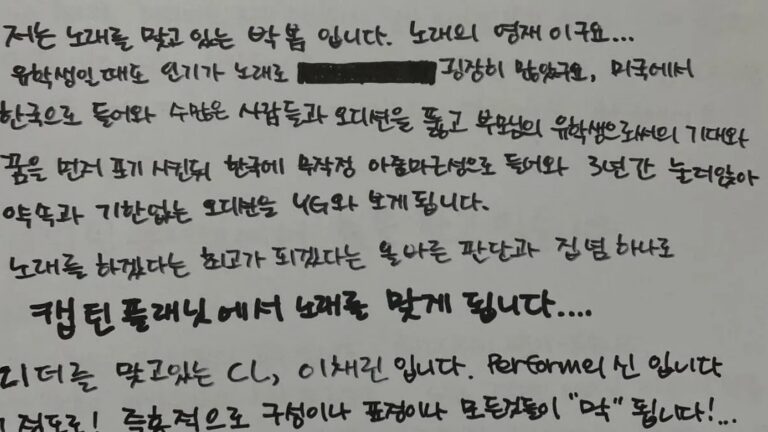 저는 노래를 맞고 있는 박봄 입니다. 노래의 영재 이구요...
유학생일때도 인기가 노래로 굉장히 많았구요, 미국에서
한국으로 들어와 수많은 사람들과 오디션을 뚫고 부모님의 유학생으로써의 기대와
꿈을 먼저 포기 시킨뒤 한국에 무작정 아줌마근성으로 들어와 3년간 눌러앉아
약속과 기한없는 오디션을 YG와 보게됩니다.
노래를 하겠다는 최고가 되겠다는 올바른 판단과 집념 하나로
캡틴플래닛에서 노래를 맞게 됩니다....
리더를 맞고있는 CL, 이채린 입니다. Perform의 신 입니다
정도로! 즉흥적으로 구성이나 표정이나 모든것들이 "먹" 됩니다!...